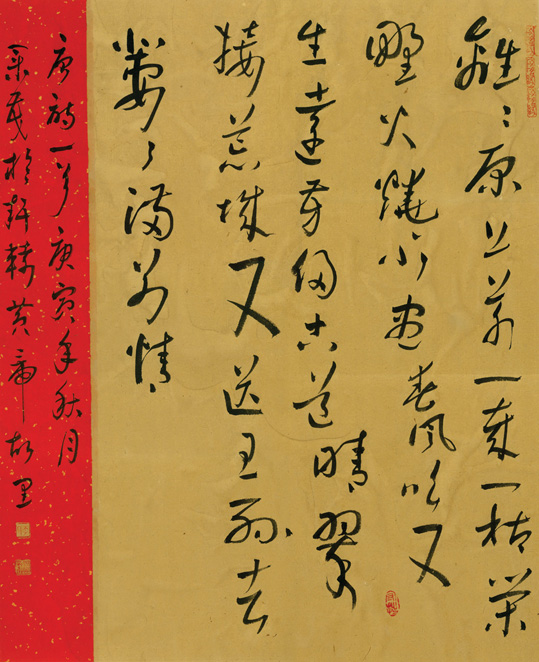 離々原上草一歲一枯榮
野火燒不盡春風吹又
生遠芳侵古道晴翠
接荒城又送王孫去
萋々滿別情
唐詩一首庚寅年秋月
於軒轅黃帝故里